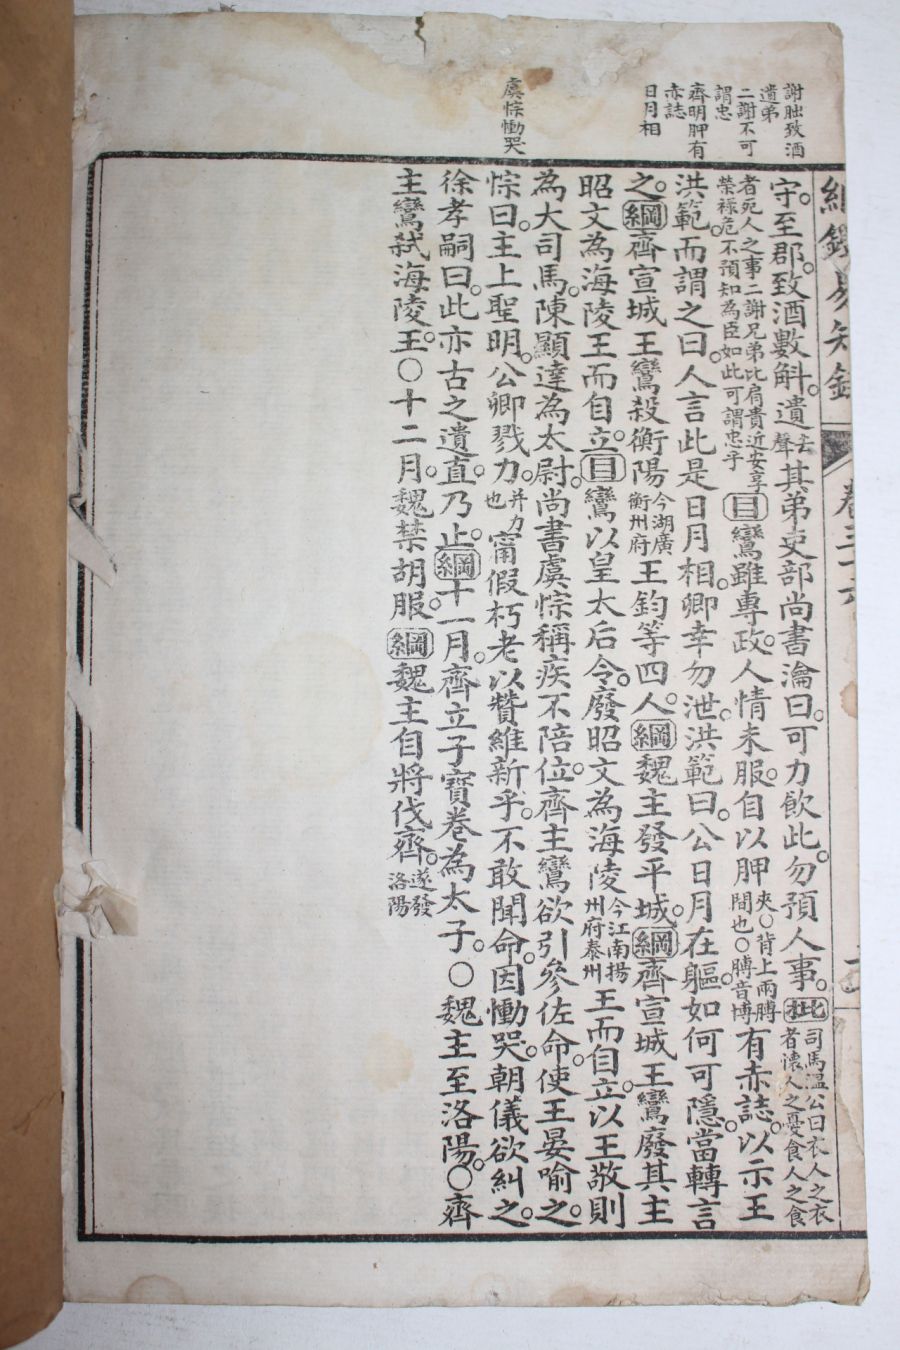 謝朏致酒
遺弟
二謝不可
謂忠
齊明胛有
赤誌
日月相
虞悰慟哭
綱鑑易知錄
卷三十
守。至郡。致酒數斛。遺去聲其弟吏部尚書瀹曰。可力飲此。勿預人事。批司馬溫公曰衣人之衣者懷人之憂食人之食
者死人之事二謝兄弟比肩貴近安享榮祿危不預知為臣如此可謂忠乎目鸞雖專政。人情未服。自以胛夾〇背上兩膊閒也〇膊音博有赤誌。以示王
洪範。而謂之曰。人言此是日月相。卿幸勿泄。洪範曰。公日月在軀。如何可隱。當轉言
之。綱齊宣城王鸞殺衡陽今湖廣衡州府王鈞等四人。綱魏主發平城。綱齊宣城王鸞廢其主
昭文為海陵王而自立。目鸞以皇太后令。廢昭文為海陵今江南揚州府泰州王而自立。以王敬則
為大司馬。陳顯達為太尉。尚書虞悰稱疾不陪位。齊主鸞欲引參佐命。使王晏喻之。
悰曰。主上聖明。公卿戮力。并力也甯假朽老以贊維新乎。不敢聞命。因慟哭。朝儀欲糾之。
徐孝嗣曰。此亦古之遺直。乃止。綱十一月。齊立子寶卷為太子。〇魏主至洛陽。〇齊
主鸞弒海陵王。〇十二月。魏禁胡服。綱魏主自將伐齊。遂發洛陽